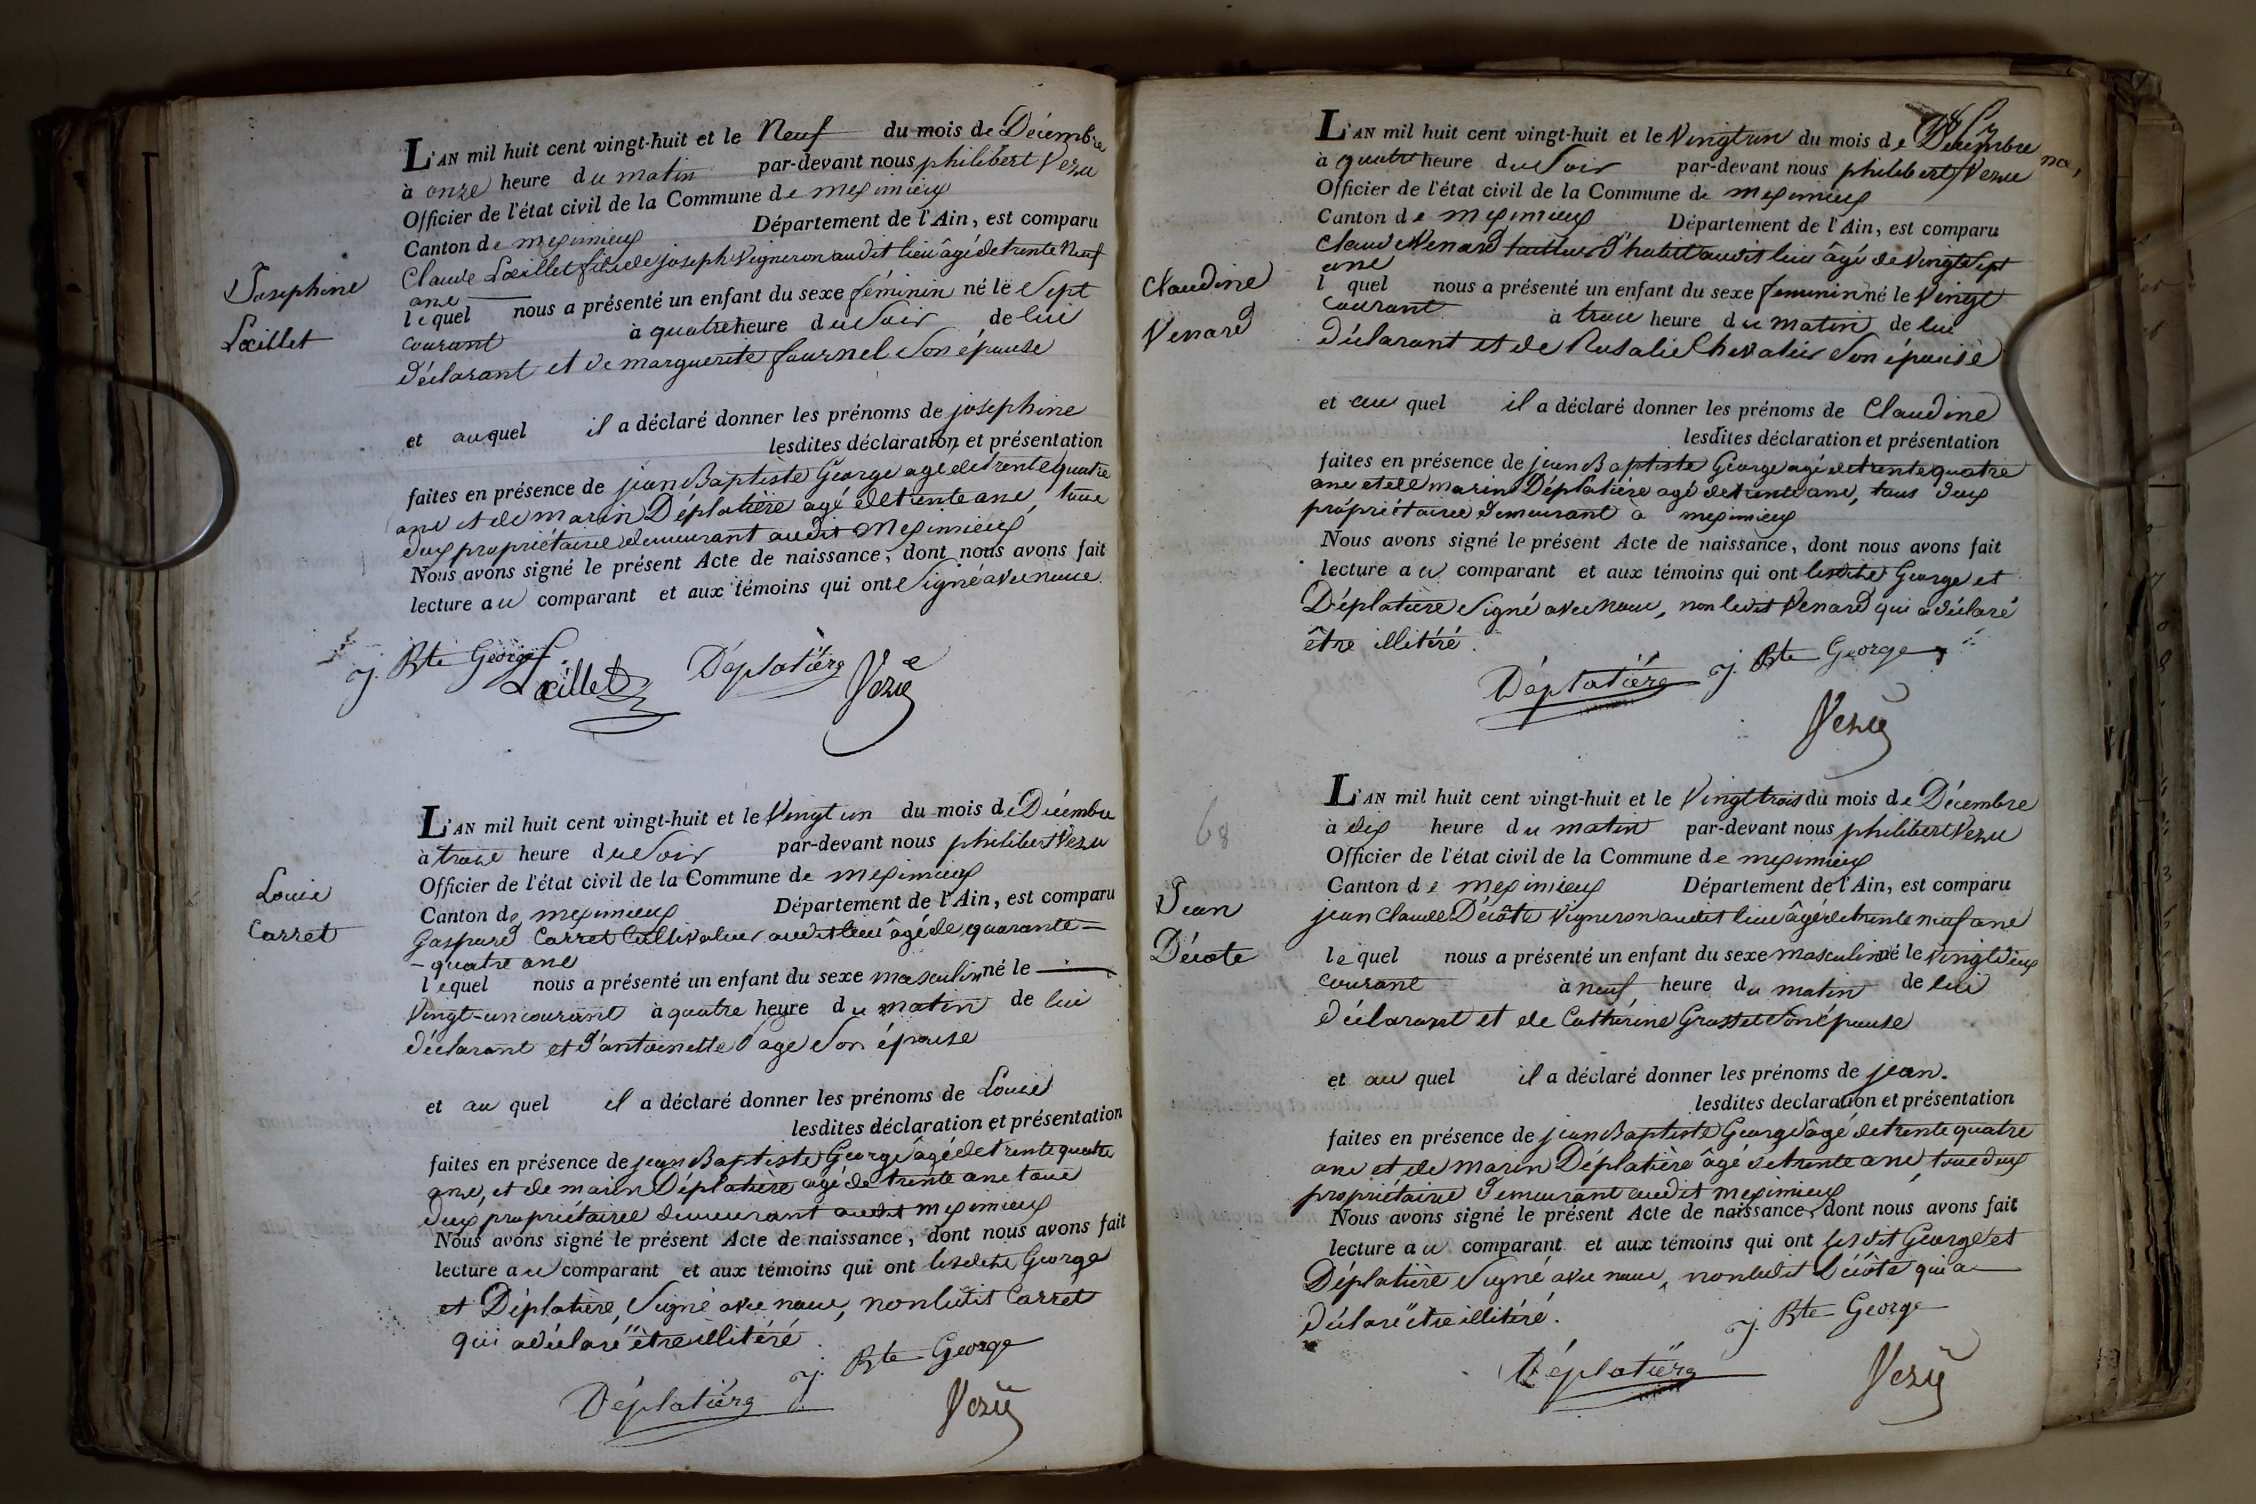 L'AN mil huit cent vingt-huit et le Neuf du mois de Décembre
à onze heure du matin par-devant nous philibert Vezu
Officier de l'état civil de la Commune de meximieux
Canton de meximieux Département de l'Ain, est comparu
Claude Lœillet fils de joseph Vigneron audit lieu âgé de trente Neuf
ans
lequel nous a présenté un enfant du sexe féminin né le Sept
courant à quatre heure du Soir de lui
déclarant et de marguerite fournel Son épouse
et auquel il a déclaré donner les prénoms de josephine
lesdites déclaration et présentation
faites en présence de jean Baptiste George agé de trente quatre
ans et de marin Déplatière agé de trente ans, tous
deux propriétaires demeurant audit Meximieux
Nous avons signé le présent Acte de naissance, dont nous avons fait
lecture au comparant et aux témoins qui ont Signé avec nous.
Josephine
Lœillet
j. Bte George Lœillet Déplatière Vezu
L'AN mil huit cent vingt-huit et le Vingt un du mois de Décembre
à trois heure du Soir par-devant nous philibert Vezu
Officier de l'état civil de la Commune de meximieux
Canton de meximieux Département de l'Ain, est comparu
Gaspard Carret Cultivateur audit lieu âgé de quarante-
-quatre ans
lequel nous a présenté un enfant du sexe masculin né le
Vingt-un courant à quatre heure du matin de lui
déclarant et d'antoinette Page Son épouse
et au quel il a déclaré donner les prénoms de Louis
lesdites déclaration et présentation
faites en présence de jean Baptiste George âgé de trente quatre
ans, et de marin Déplatière agé de trente ans tous
deux propriétaires demeurant audit meximieux
Nous avons signé le présent Acte de naissance, dont nous avons fait
lecture au comparant et aux témoins qui ont lesdits George
et Déplatière, Signé avec nous, non ledit Carret
qui a déclaré être illitéré.
Louis
Carret
j. Bte George
Déplatière Vezu
L'AN mil huit cent vingt-huit et le Vingt un du mois de Décembre
à quatre heure du Soir par-devant nous philibert Vezu
Officier de l'état civil de la Commune de meximieux
Canton de meximieux Département de l'Ain, est comparu
Claude Venard tailleur d'habit audit lieu âgé de Vingt Sept
ans
l quel nous a présenté un enfant du sexe feminin né le Vingt
courant à trois heure du matin de lui
déclarant et de Rosalie Chevalier Son épouse
et au quel il a déclaré donner les prénoms de Claudine
lesdites déclaration et présentation
faites en présence de jean Baptiste George agé de trente quatre
ans et de marin Déplatière agé de trente ans, tous deux
propriétaires demeurant a meximieux
Nous avons signé le présent Acte de naissance, dont nous avons fait
lecture au comparant et aux témoins qui ont lesdits George et
Déplatière Signé avec nous, non ledit Venard qui a déclaré
être illitéré.
Claudine
Venard
Déplatière j. Bte George
Vezu
68
L'AN mil huit cent vingt-huit et le Vingt trois du mois de Décembre
à dix heure du matin par-devant nous philibert Vezu
Officier de l'état civil de la Commune de meximieux
Canton de meximieux Département de l'Ain, est comparu
jean Claude Décôte Vigneron audit lieu âgé de trente neuf ans
lequel nous a présenté un enfant du sexe masculin né le Vingt deux
courant à neuf heure du matin de lui
déclarant et de Catherine Grosset Son épouse
et au quel il a déclaré donner les prénoms de jean.
lesdites declaration et présentation
faites en présence de jean Baptiste George âgé de trente quatre
ans et de marin Déplatière âgé de trente ans, tous deux
propriétaires demeurant audit meximieux
Nous avons signé le présent Acte de naissance, dont nous avons fait
lecture au comparant et aux témoins qui ont lesdit George et
Déplatière Signé avec nous, non ledit Décôte qui a
déclaré être illitéré.
Jean
Décote
j. Bte George
Déplatière Vezu